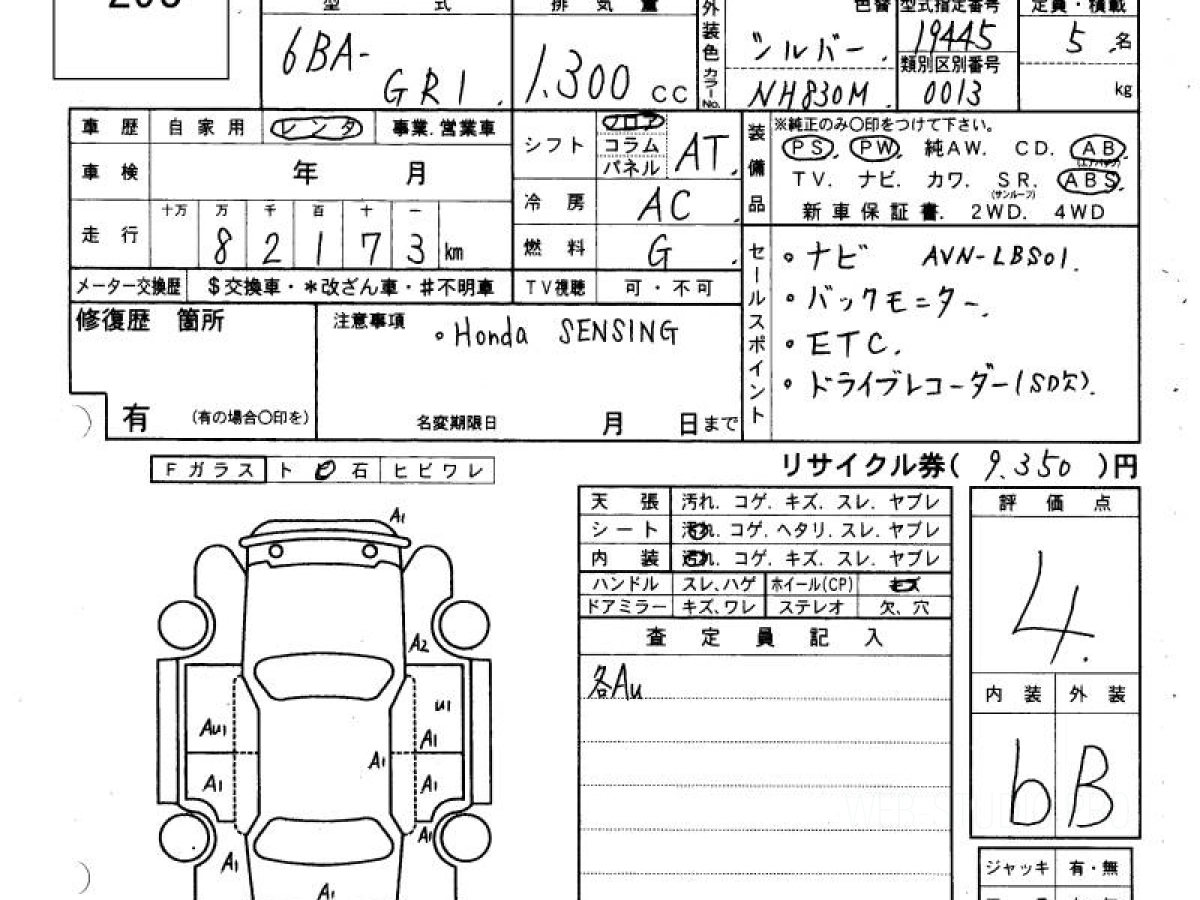 型 式 排 気 量 外装色 カラーNo. 色替 型式指定番号 定員・積載
6BA- 1.300 CC シルバー. 19445 5 名
GR1. NH830M. 類別区別番号 0013 kg
車 歴 自 家 用 レ ン タ 事業.営業車
車 検 年 月
走 行 十万 万 千 百 十 一
8 2 1 7 3 km
メーター交換歴 $交換車・*改ざん車・#不明車
シフト フロア コラム パネル AT.
冷 房 AC.
燃 料 G.
TV視聴 可・不可
装備品 ※純正のみ〇印をつけて下さい。
PS. PW. 純AW. CD. AB (エアバッグ)
TV. ナビ. カワ. SR. (サンルーフ) ABS.
新 車 保 証 書. 2WD. 4WD
修復歴 箇所
有 (有の場合〇印を)
注意事項 ・Honda SENSING
名変期限日 月 日まで
セールスポイント
・ナビ AVN-LBS01.
・バックモニター.
・ETC.
・ドライブレコーダー(SD欠).
Fガラス ト ビ 石 ヒビワレ
リサイクル券( 9.350 )円
天 張 汚れ. コゲ. キズ. スレ. ヤブレ
シート 汚れ. コゲ. ヘタリ. スレ. ヤブレ
内 装 汚れ. コゲ. キズ. スレ. ヤブレ
ハンドル スレ、ハゲ ホイール(CP) キズ
ドアミラー キズ、ワレ ステレオ 欠、穴
査 定 員 記 入
各AU
評 価 点
4.
内 装 外 装
b B
ジャッキ 有・無
A1
A2
U1
AU1
A1
A1
A1
A1
A1
A1
A1